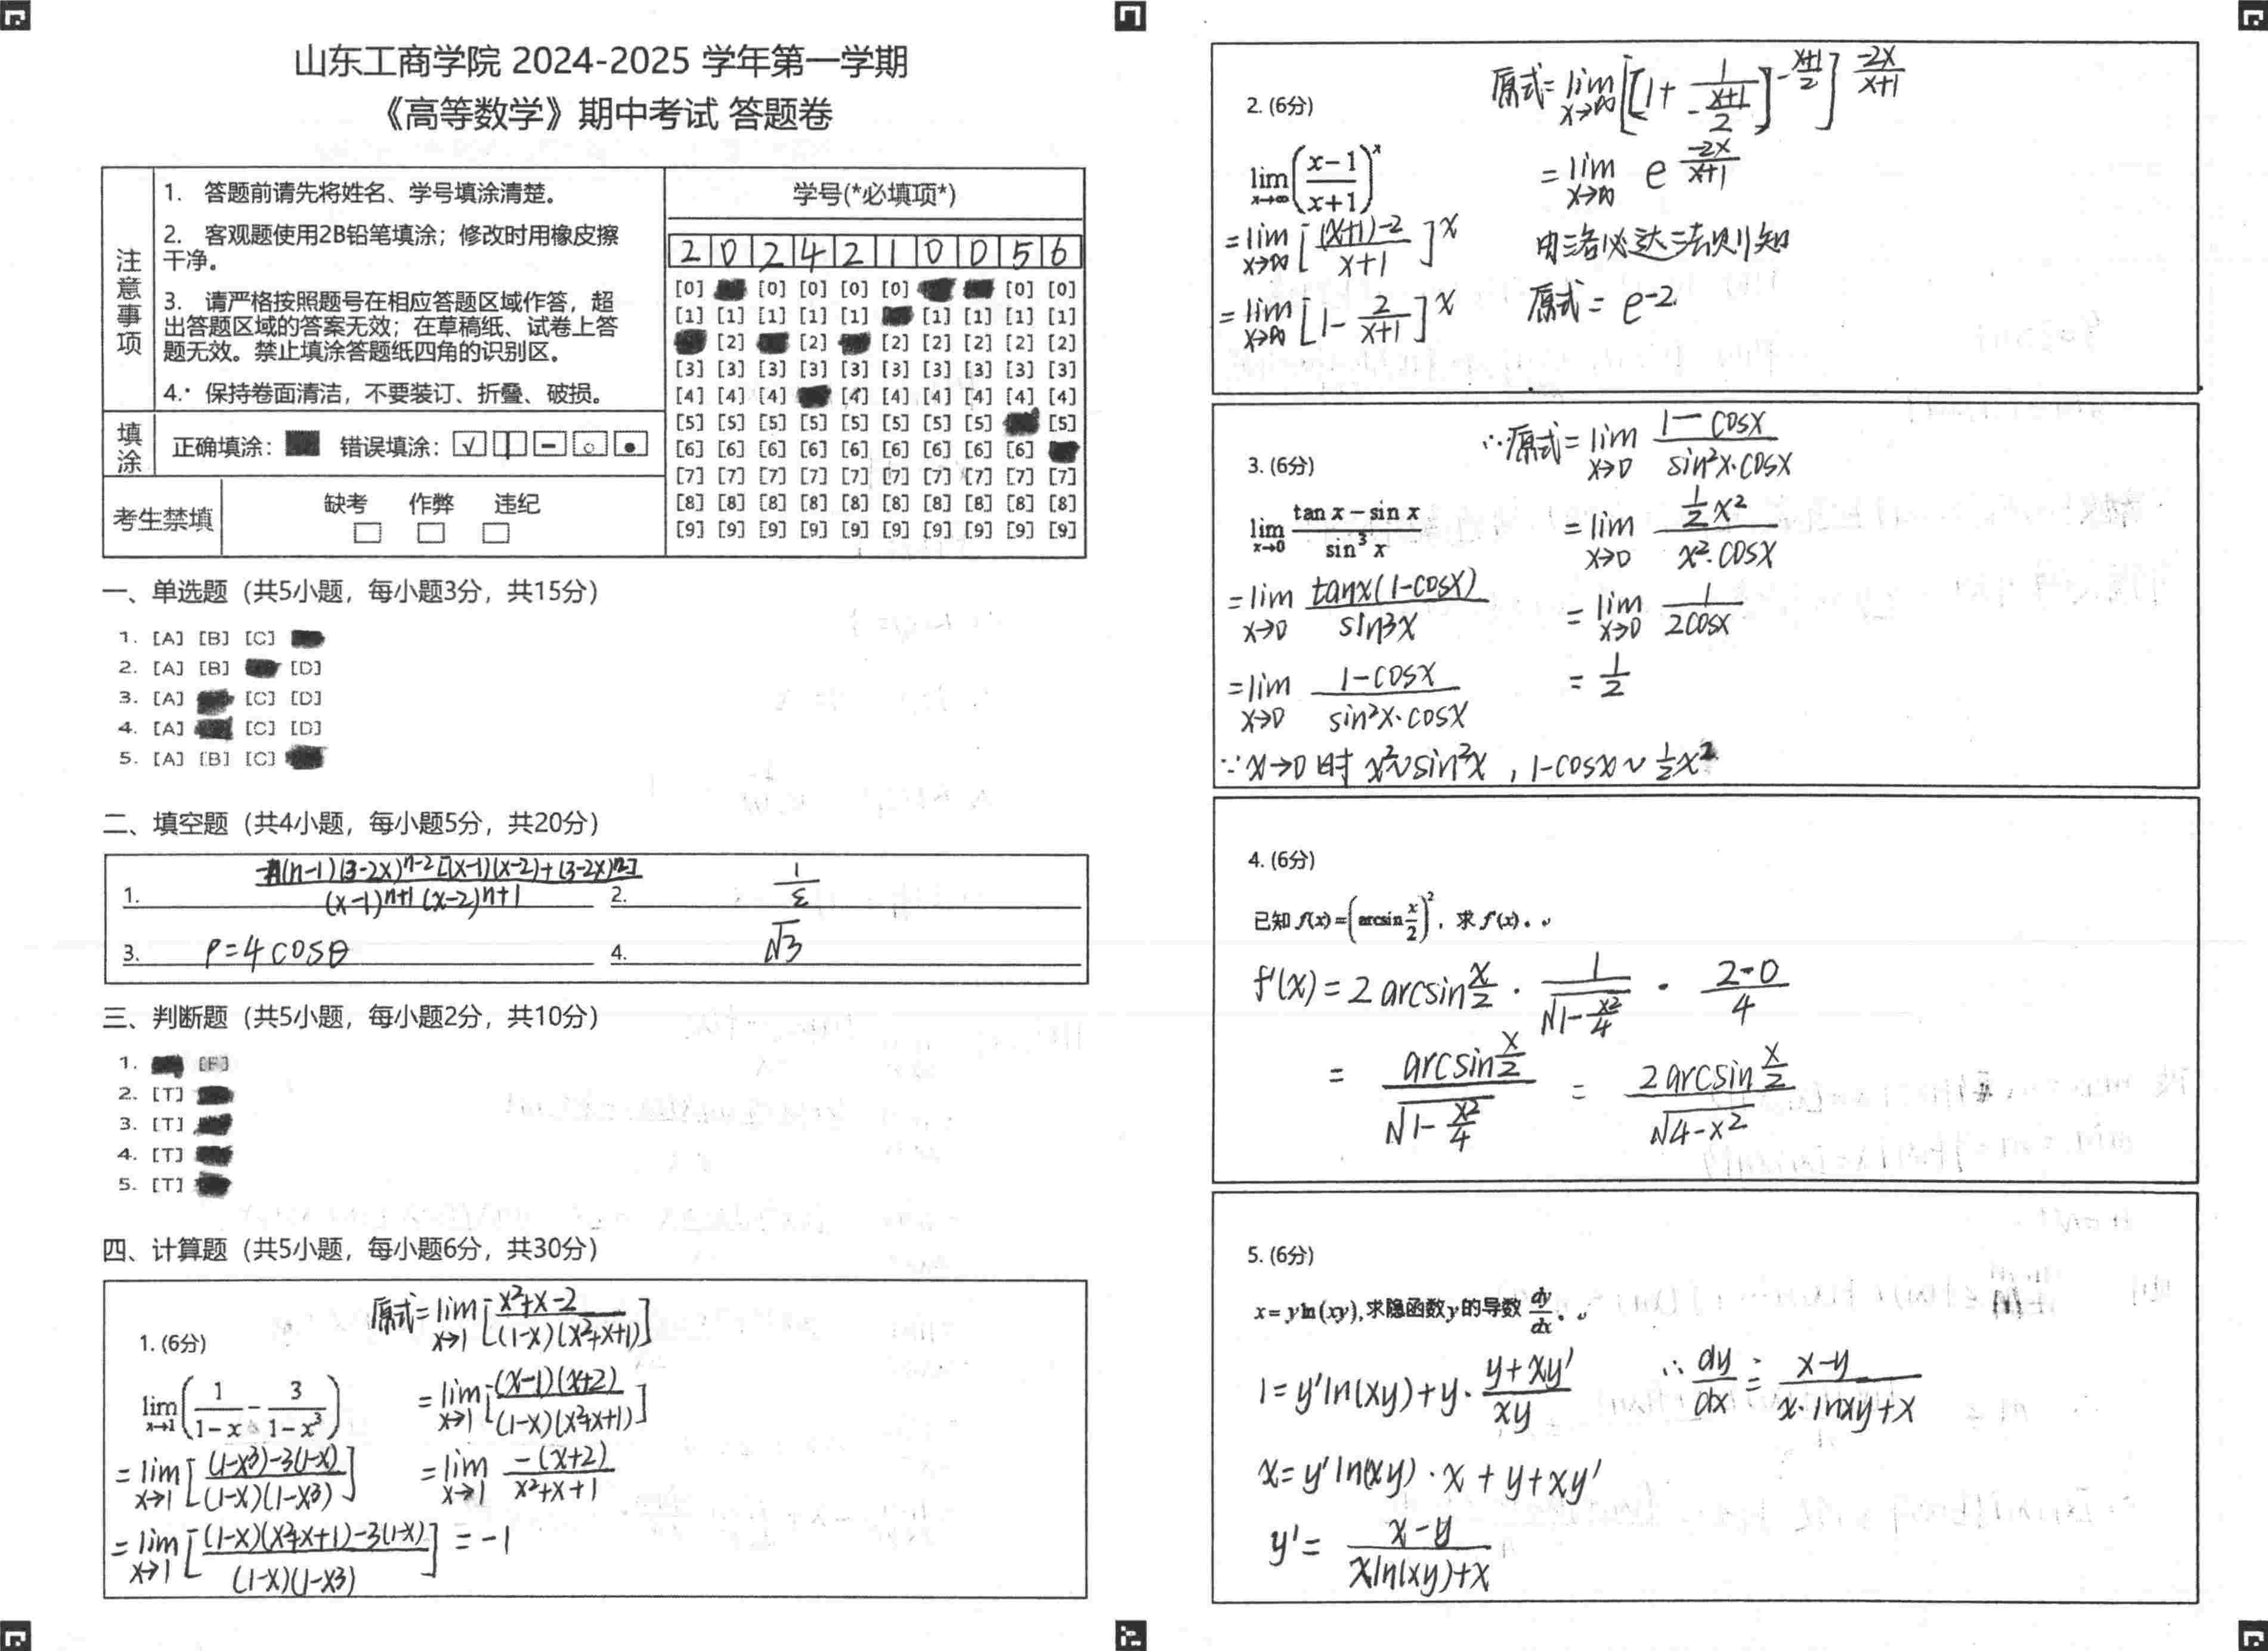 山东工商学院 2024-2025 学年第一学期
《高等数学》期中考试 答题卷
注意事项
1. 答题前请先将姓名、学号填涂清楚。
2. 客观题使用2B铅笔填涂；修改时用橡皮擦
干净。
3. 请严格按照题号在相应答题区域作答，超
出答题区域的答案无效；在草稿纸、试卷上答
题无效。禁止填涂答题纸四角的识别区。
4. 保持卷面清洁，不要装订、折叠、破损。
填涂 正确填涂： 错误填涂：
考生禁填 缺考 作弊 违纪
学号(*必填项*)
2 0 2 4 2 1 0 0 5 6
[0] [0] [0] [0] [0] [0] [0]
[1] [1] [1] [1] [1] [1] [1] [1] [1]
[2] [2] [2] [2] [2] [2] [2]
[3] [3] [3] [3] [3] [3] [3] [3] [3] [3]
[4] [4] [4] [4] [4] [4] [4] [4] [4]
[5] [5] [5] [5] [5] [5] [5] [5] [5]
[6] [6] [6] [6] [6] [6] [6] [6] [6]
[7] [7] [7] [7] [7] [7] [7] [7] [7] [7]
[8] [8] [8] [8] [8] [8] [8] [8] [8] [8]
[9] [9] [9] [9] [9] [9] [9] [9] [9] [9]
一、单选题（共5小题，每小题3分，共15分）
1. [A] [B] [C]
2. [A] [B] [D]
3. [A] [C] [D]
4. [A] [C] [D]
5. [A] [B] [C]
二、填空题（共4小题，每小题5分，共20分）
1. (n-1)(3-2x)^{n-2}[(x-1)(x-2)+(3-2x)^{n-2}] / (x-1)^{n+1}(x-2)^{n+1}
2. 1/ε
3. ρ=4cosθ
4. √3
三、判断题（共5小题，每小题2分，共10分）
1. [F]
2. [T]
3. [T]
4. [T]
5. [T]
四、计算题（共5小题，每小题6分，共30分）
1. (6分)
lim_{x→1}(1/(1-x) - 3/(1-x^3))
=lim_{x→1}[((1-x^3)-3(1-x))/((1-x)(1-x^3))]
=lim_{x→1}[((1-x)(x^2+x+1)-3(1-x))/((1-x)(1-x^3))]
原式=lim_{x→1}[(x^2+x-2)/((1-x)(x^2+x+1))]
=lim_{x→1}[((x-1)(x+2))/((1-x)(x^2+x+1))]
=lim_{x→1} -(x+2)/(x^2+x+1)
=-1
2. (6分)
lim_{x→∞}((x-1)/(x+1))^x
=lim_{x→∞}[((x+1)-2)/(x+1)]^x
=lim_{x→∞}[1-2/(x+1)]^x
原式=lim_{x→∞}[[1+1/(-(x+1)/2)]^{-(x+1)/2}]^{-2x/(x+1)}
=lim_{x→∞} e^{-2x/(x+1)}
由洛必达法则知
原式=e^{-2}
3. (6分)
lim_{x→0} (tan x-sin x)/(sin^3 x)
=lim_{x→0} tanx(1-cosx)/sin^3x
=lim_{x→0} (1-cosx)/(sin^2x·cosx)
∵x→0时 x^2~sin^2x，1-cosx~1/2x^2
∴原式=lim_{x→0} (1-cosx)/(sin^2x·cosx)
=lim_{x→0} (1/2x^2)/(x^2·cosx)
=lim_{x→0} 1/(2cosx)
=1/2
4. (6分)
已知 f(x)=(arcsin x/2)^2，求 f'(x)。
f'(x)=2arcsin x/2 · 1/√(1-x^2/4) · (2-0)/4
= (arcsin x/2)/√(1-x^2/4) = (2arcsin x/2)/√(4-x^2)
5. (6分)
x=y ln(xy), 求隐函数y的导数 dy/dx。
1=y'ln(xy)+y·(y+xy')/(xy)
x=y'ln(xy)·x+y+xy'
y'=(x-y)/(xln(xy)+x)
∴dy/dx=(x-y)/(x·lnxy+x)